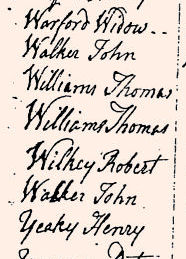 Warford Widow
Walker John
Williams Thomas
Williams Thomas
Wilkey Robert
Walker John
Yeaky Henry